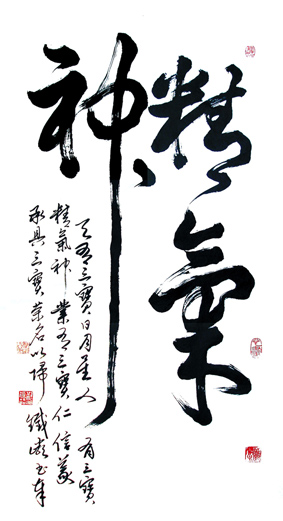 精氣
神
天有三寶日月星人有三寶
精氣神業有三寶仁信義
承具三寶榮名以歸